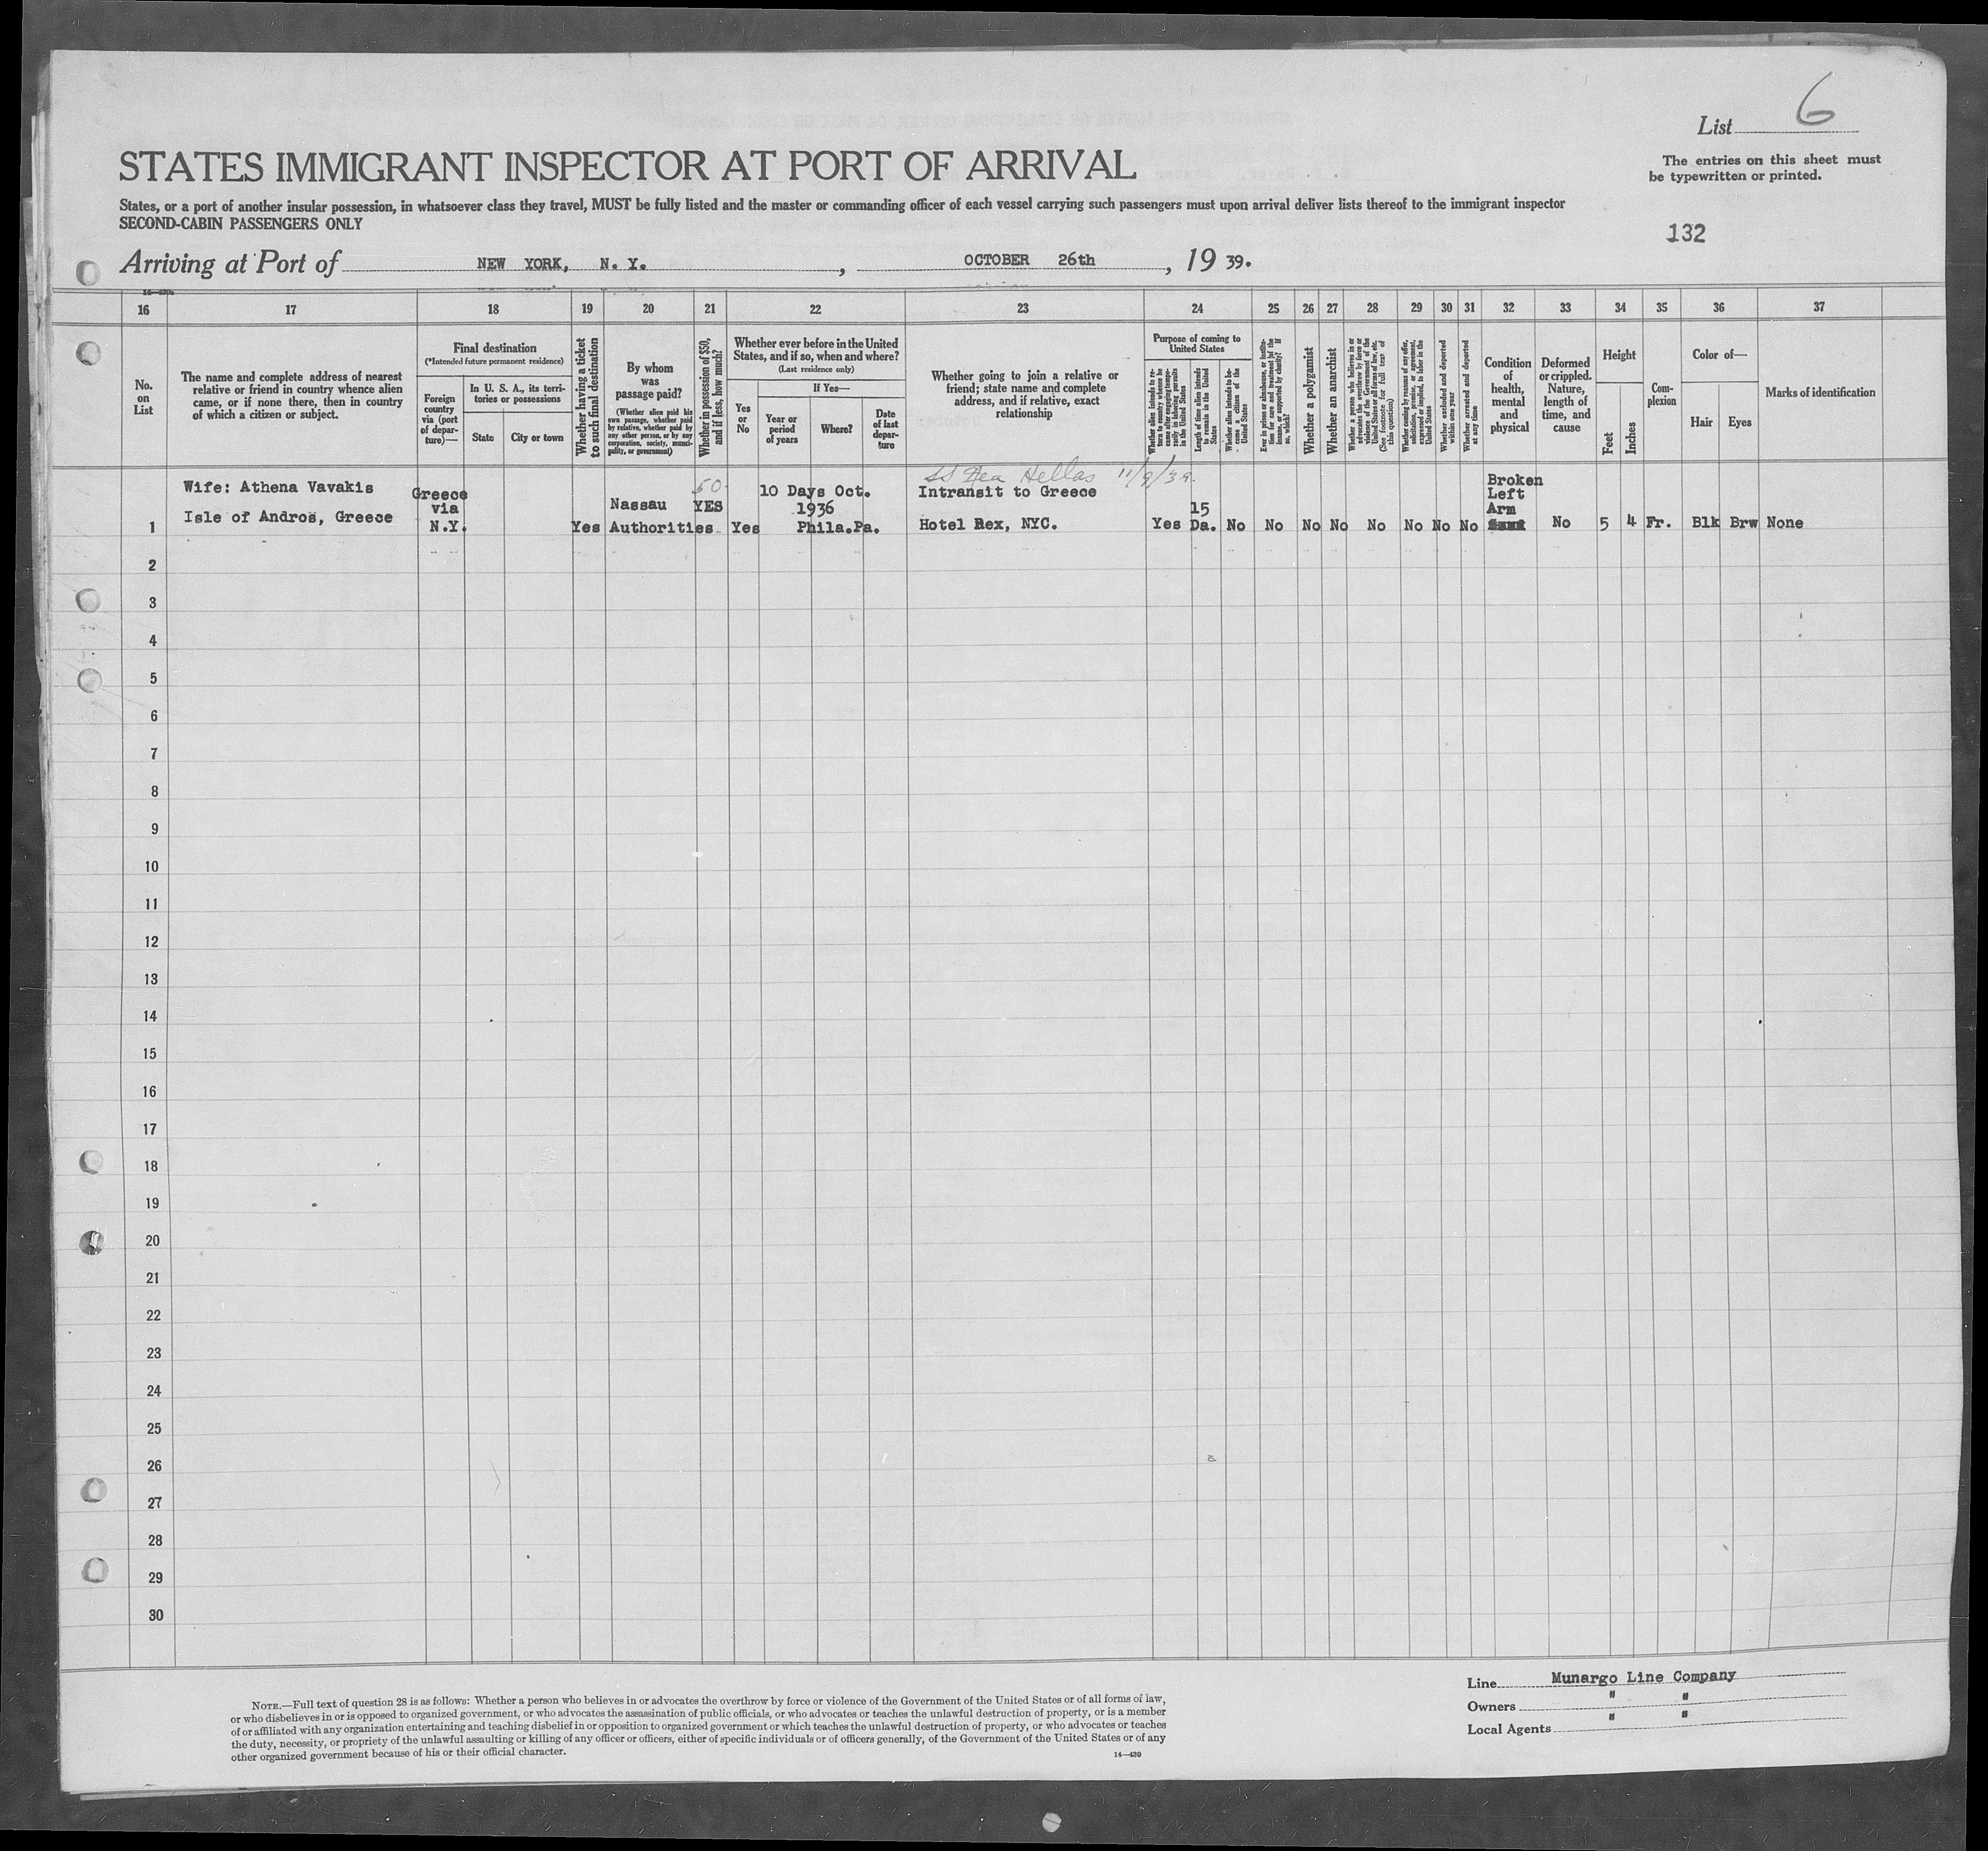 List 6
STATES IMMIGRANT INSPECTOR AT PORT OF ARRIVAL
The entries on this sheet must
be typewritten or printed.
States, or a port of another insular possession, in whatsoever class they travel, MUST be fully listed and the master or commanding officer of each vessel carrying such passengers must upon arrival deliver lists thereof to the immigrant inspector
SECOND-CABIN PASSENGERS ONLY
132
Arriving at Port of NEW YORK, N. Y. , OCTOBER 26th , 19 39.
16 17 18 19 20 21 22 23 24 25 26 27 28 29 30 31 32 33 34 35 36 37
No.
on
List
The name and complete address of nearest
relative or friend in country whence alien
came, or if none there, then in country
of which a citizen or subject.
Final destination
(*Intended future permanent residence)
Foreign
country
via (port
of depar-
ture)—
In U. S. A., its terri-
tories or possessions
State
City or town
Whether having a ticket
to such final destination
By whom
was
passage paid?
(Whether alien paid his
own passage, whether paid
by relative, whether paid by
any other person, or by any
corporation, society, munici-
pality, or government)
Whether in possession of $50,
and if less, how much?
Whether ever before in the United
States, and if so, when and where?
(Last residence only)
Yes
or
No
If Yes—
Year or
period
of years
Where?
Date
of last
depar-
ture
Whether going to join a relative or
friend; state name and complete
address, and if relative, exact
relationship
Purpose of coming to
United States
Whether alien intends to re-
turn to country whence he
came after engaging tempo-
rarily in laboring pursuits
in the United States
Length of time alien intends
to remain in the United
States
Whether alien intends to be-
come a citizen of the
United States
Ever in prison or almshouse, or institu-
tion for care and treatment of the
insane, or supported by charity? If
so, which?
Whether a polygamist
Whether an anarchist
Whether a person who believes in or
advocates the overthrow by force or
violence of the Government of the
United States or all forms of law, etc.
(See footnote for full text of
this question)
Whether coming by reasons of any offer,
solicitation, promise, or agreement,
expressed or implied, to labor in the
United States
Whether excluded and deported
within one year
Whether arrested and deported
at any time
Condition
of
health,
mental
and
physical
Deformed
or crippled.
Nature,
length of
time, and
cause
Height
Feet
Inches
Com-
plexion
Color of—
Hair
Eyes
Marks of identification
SS Nea Hellas 11/9/39.
Wife: Athena Vavakis
Isle of Andros, Greece
Greece
via
N.Y.
Yes
Nassau
Authorities
50
YES
Yes
10 Days Oct.
1936
Phila.Pa.
Intransit to Greece
Hotel Rex, NYC.
Yes
15
Da.
No No No No No No No No
Broken
Left
Arm
No 5 4 Fr. Blk Brw None
1
2
3
4
5
6
7
8
9
10
11
12
13
14
15
16
17
18
19
20
21
22
23
24
25
26
27
28
29
30
NOTE.—Full text of question 28 is as follows: Whether a person who believes in or advocates the overthrow by force or violence of the Government of the United States or of all forms of law,
or who disbelieves in or is opposed to organized government, or who advocates the assassination of public officials, or who advocates or teaches the unlawful destruction of property, or is a member
of or affiliated with any organization entertaining and teaching disbelief in or opposition to organized government or which teaches the unlawful destruction of property, or who advocates or teaches
the duty, necessity, or propriety of the unlawful assaulting or killing of any officer or officers, either of specific individuals or of officers generally, of the Government of the United States or of any
other organized government because of his or their official character.
14—430
Line Munargo Line Company
Owners " "
Local Agents " "